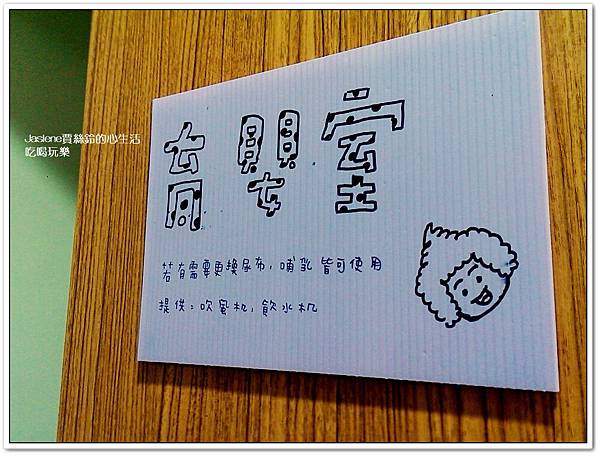 育嬰室
若有需要更換尿布，哺乳皆可使用
提供：吹風机，飲水机
Jaslene賈絲鈴的心生活
吃喝玩樂